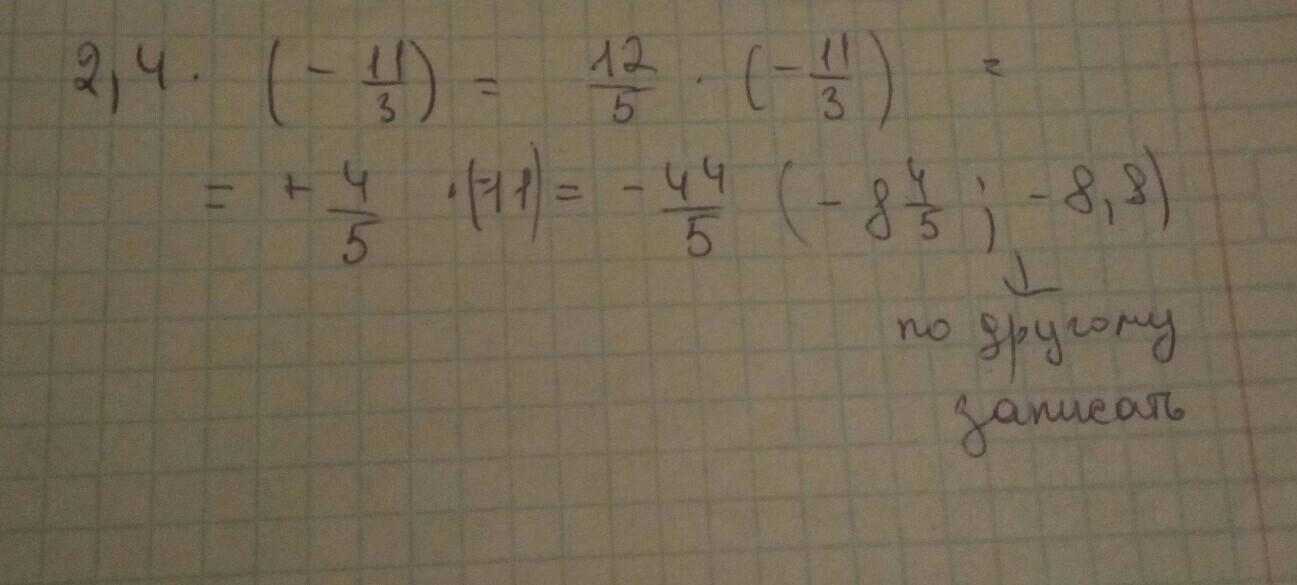 2,4 · (- 11/3) = 12/5 · (- 11/3) =
= + 4/5 · (-11) = - 44/5 (- 8 4/5 ; - 8,8)
↓
по другому
записать